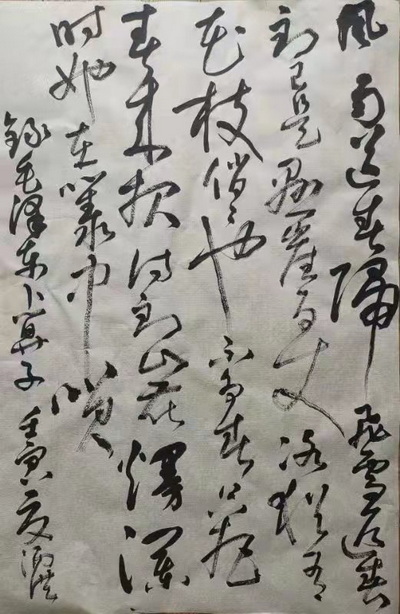 風雨送春歸飛雪迎春
到已是懸崖百丈冰猶有
花枝俏俏也不争春只把
春来报待到山花爛漫
时她在叢中笑
錄毛泽东卜算子壬寅夏